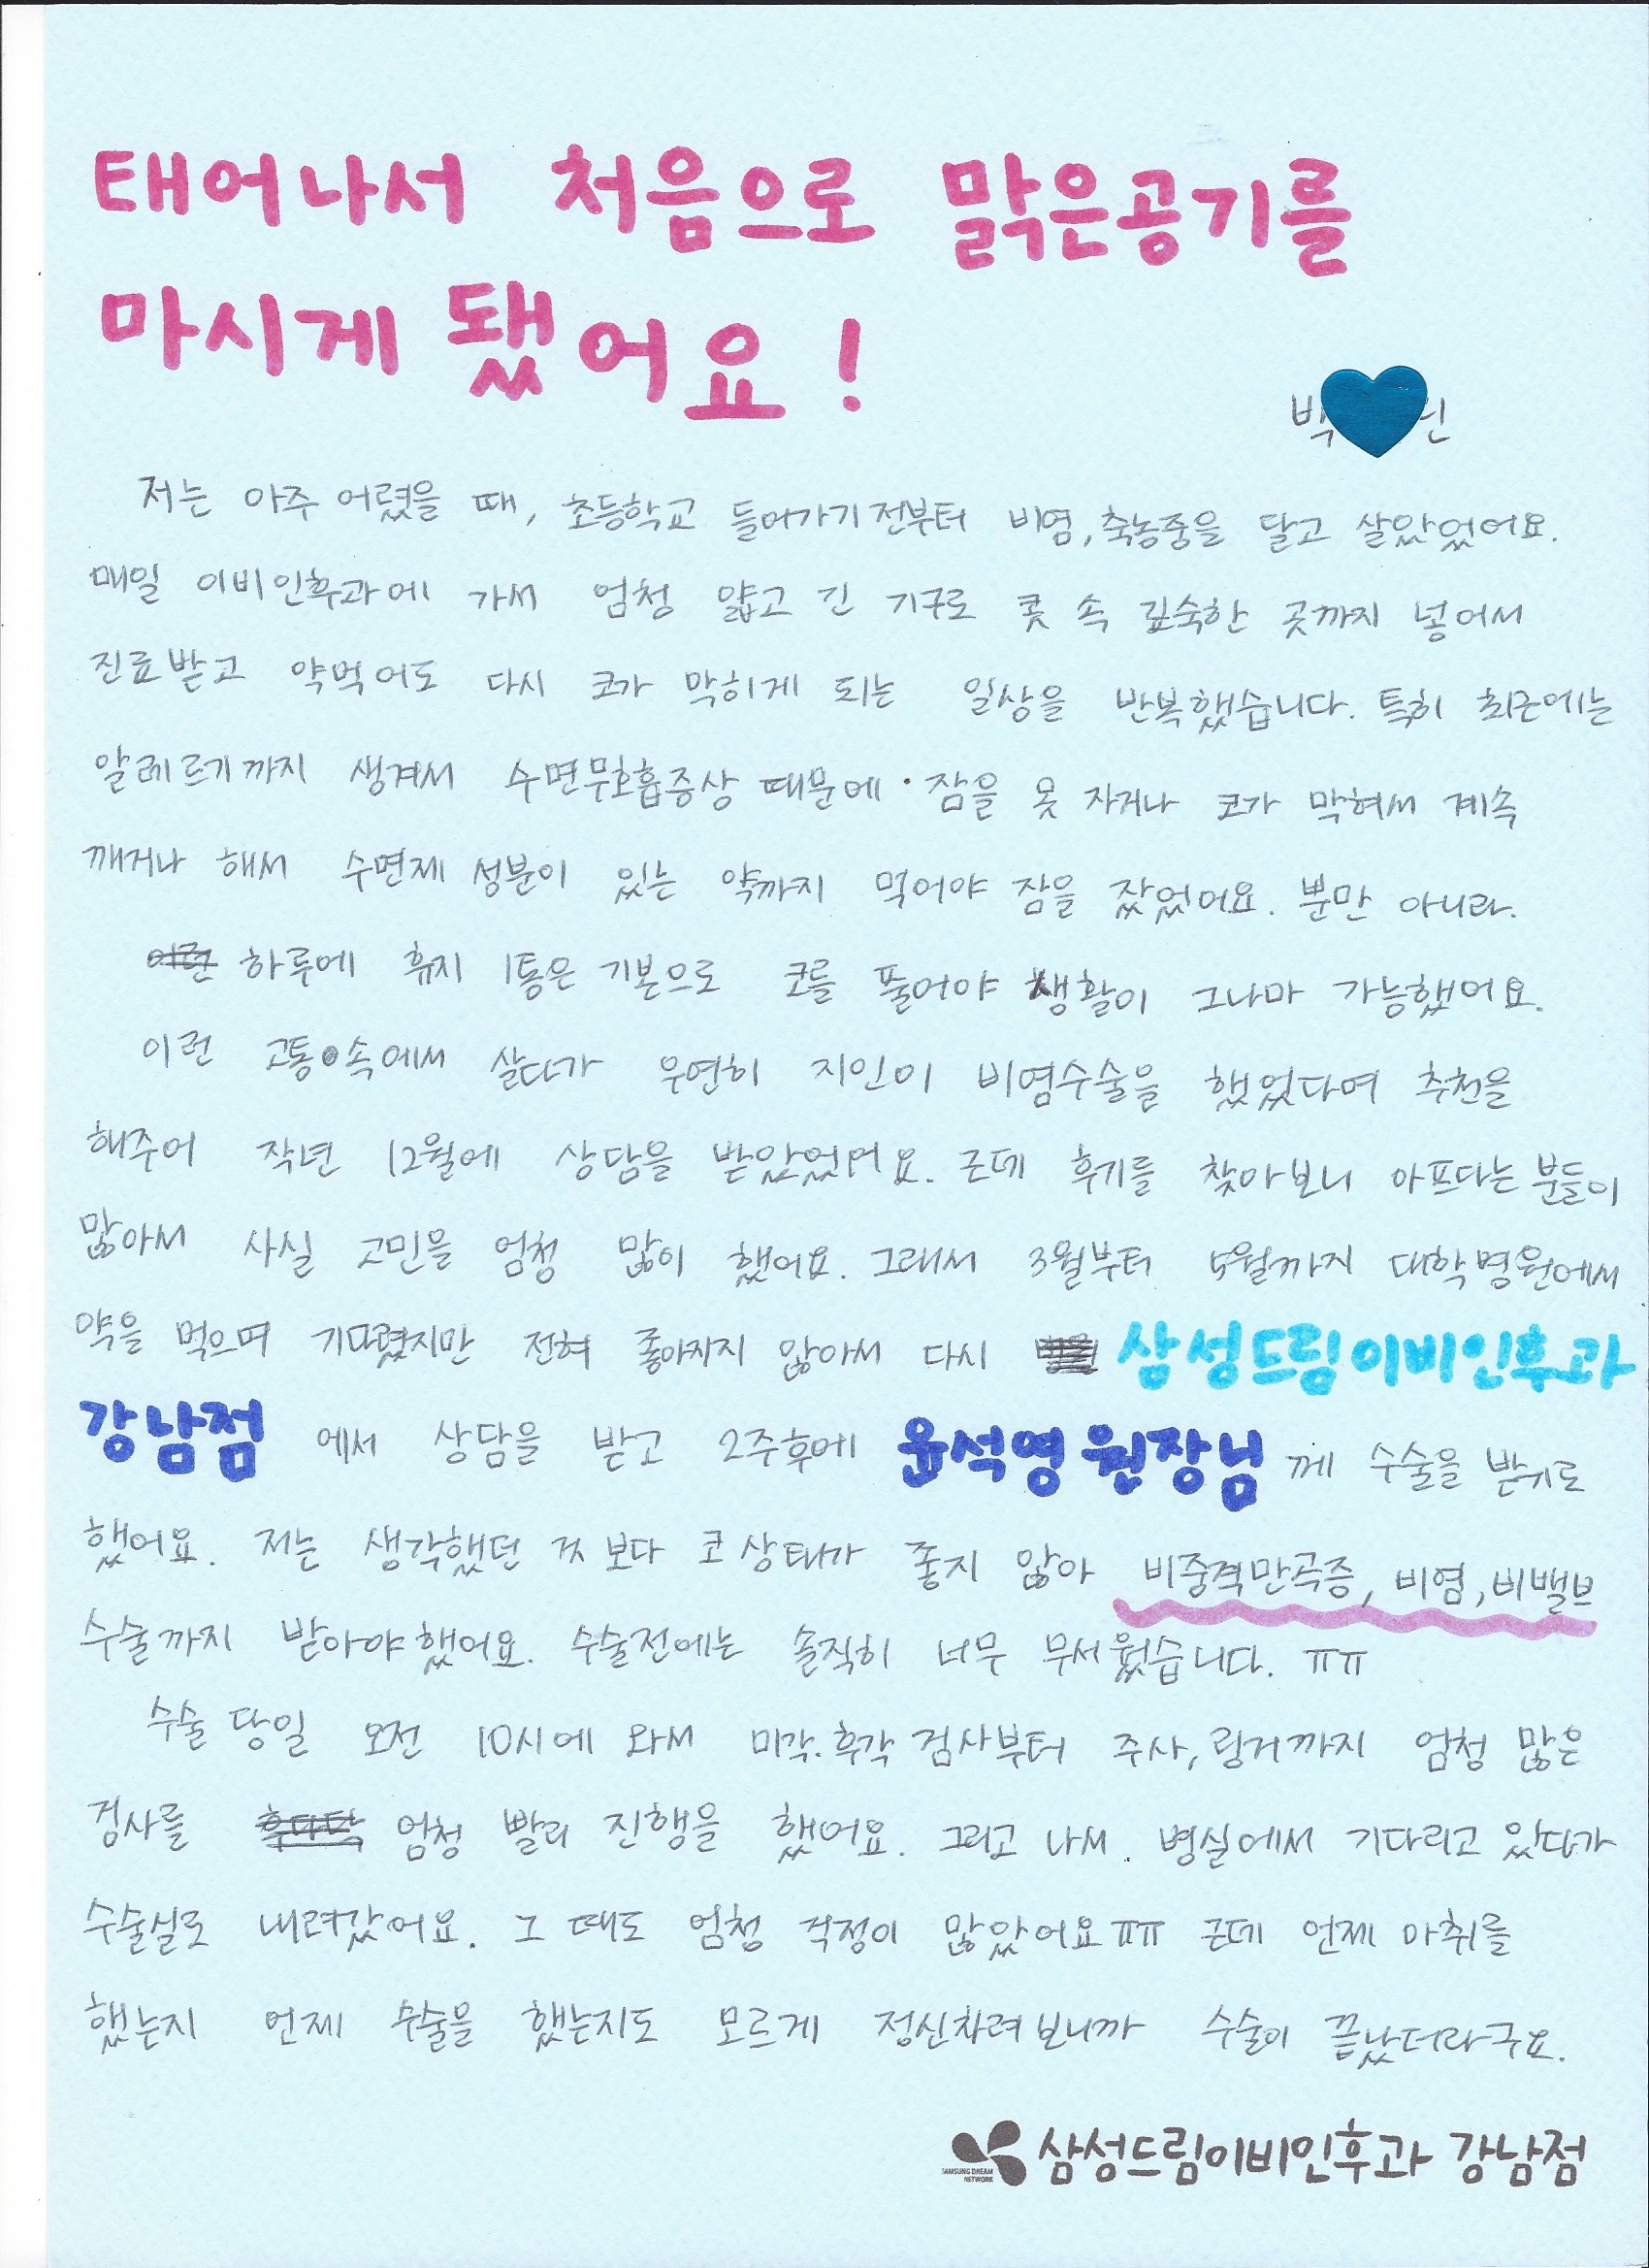 태어나서 처음으로 맑은공기를
마시게 됐어요!
박 린
저는 아주 어렸을 때, 초등학교 들어가기전부터 비염,축농증을 달고 살았었어요.
매일 이비인후과에 가서 엄청 얇고 긴 기구로 콧 속 깊숙한 곳까지 넣어서
진료받고 약먹어도 다시 코가 막히게 되는 일상을 반복했습니다. 특히 최근에는
알레르기까지 생겨서 수면무호흡증상 때문에 잠을 못 자거나 코가 막혀서 계속
깨거나 해서 수면제 성분이 있는 약까지 먹어야 잠을 잤었어요. 뿐만 아니라.
하루에 휴지 1통은 기본으로 코를 풀어야 생활이 그나마 가능했어요.
이런 고통속에서 살다가 우연히 지인이 비염수술을 했었다며 추천을
해주어 작년 12월에 상담을 받았었어요. 근데 후기를 찾아보니 아프다는 분들이
많아서 사실 고민을 엄청 많이 했어요. 그래서 3월부터 5월까지 대학병원에서
약을 먹으며 기다렸지만 전혀 좋아지지 않아서 다시 삼성드림이비인후과
강남점 에서 상담을 받고 2주후에 윤석영 원장님 께 수술을 받기로
했어요. 저는 생각했던 것 보다 코 상태가 좋지 않아 비중격만곡증, 비염, 비밸브
수술까지 받아야했어요. 수술전에는 솔직히 너무 무서웠습니다. ㅠㅠ
수술 당일 오전 10시에 와서 미각.후각 검사부터 주사,링거까지 엄청 많은
검사를 엄청 빨리 진행을 했어요. 그리고 나서. 병실에서 기다리고 있다가
수술실로 내려갔어요. 그 때도 엄청 걱정이 많았어요ㅠㅠ 근데 언제 마취를
했는지 언제 수술을 했는지도 모르게 정신차려보니까 수술이 끝났더라구요.
SAMSUNG DREAM NETWORK 삼성드림이비인후과 강남점